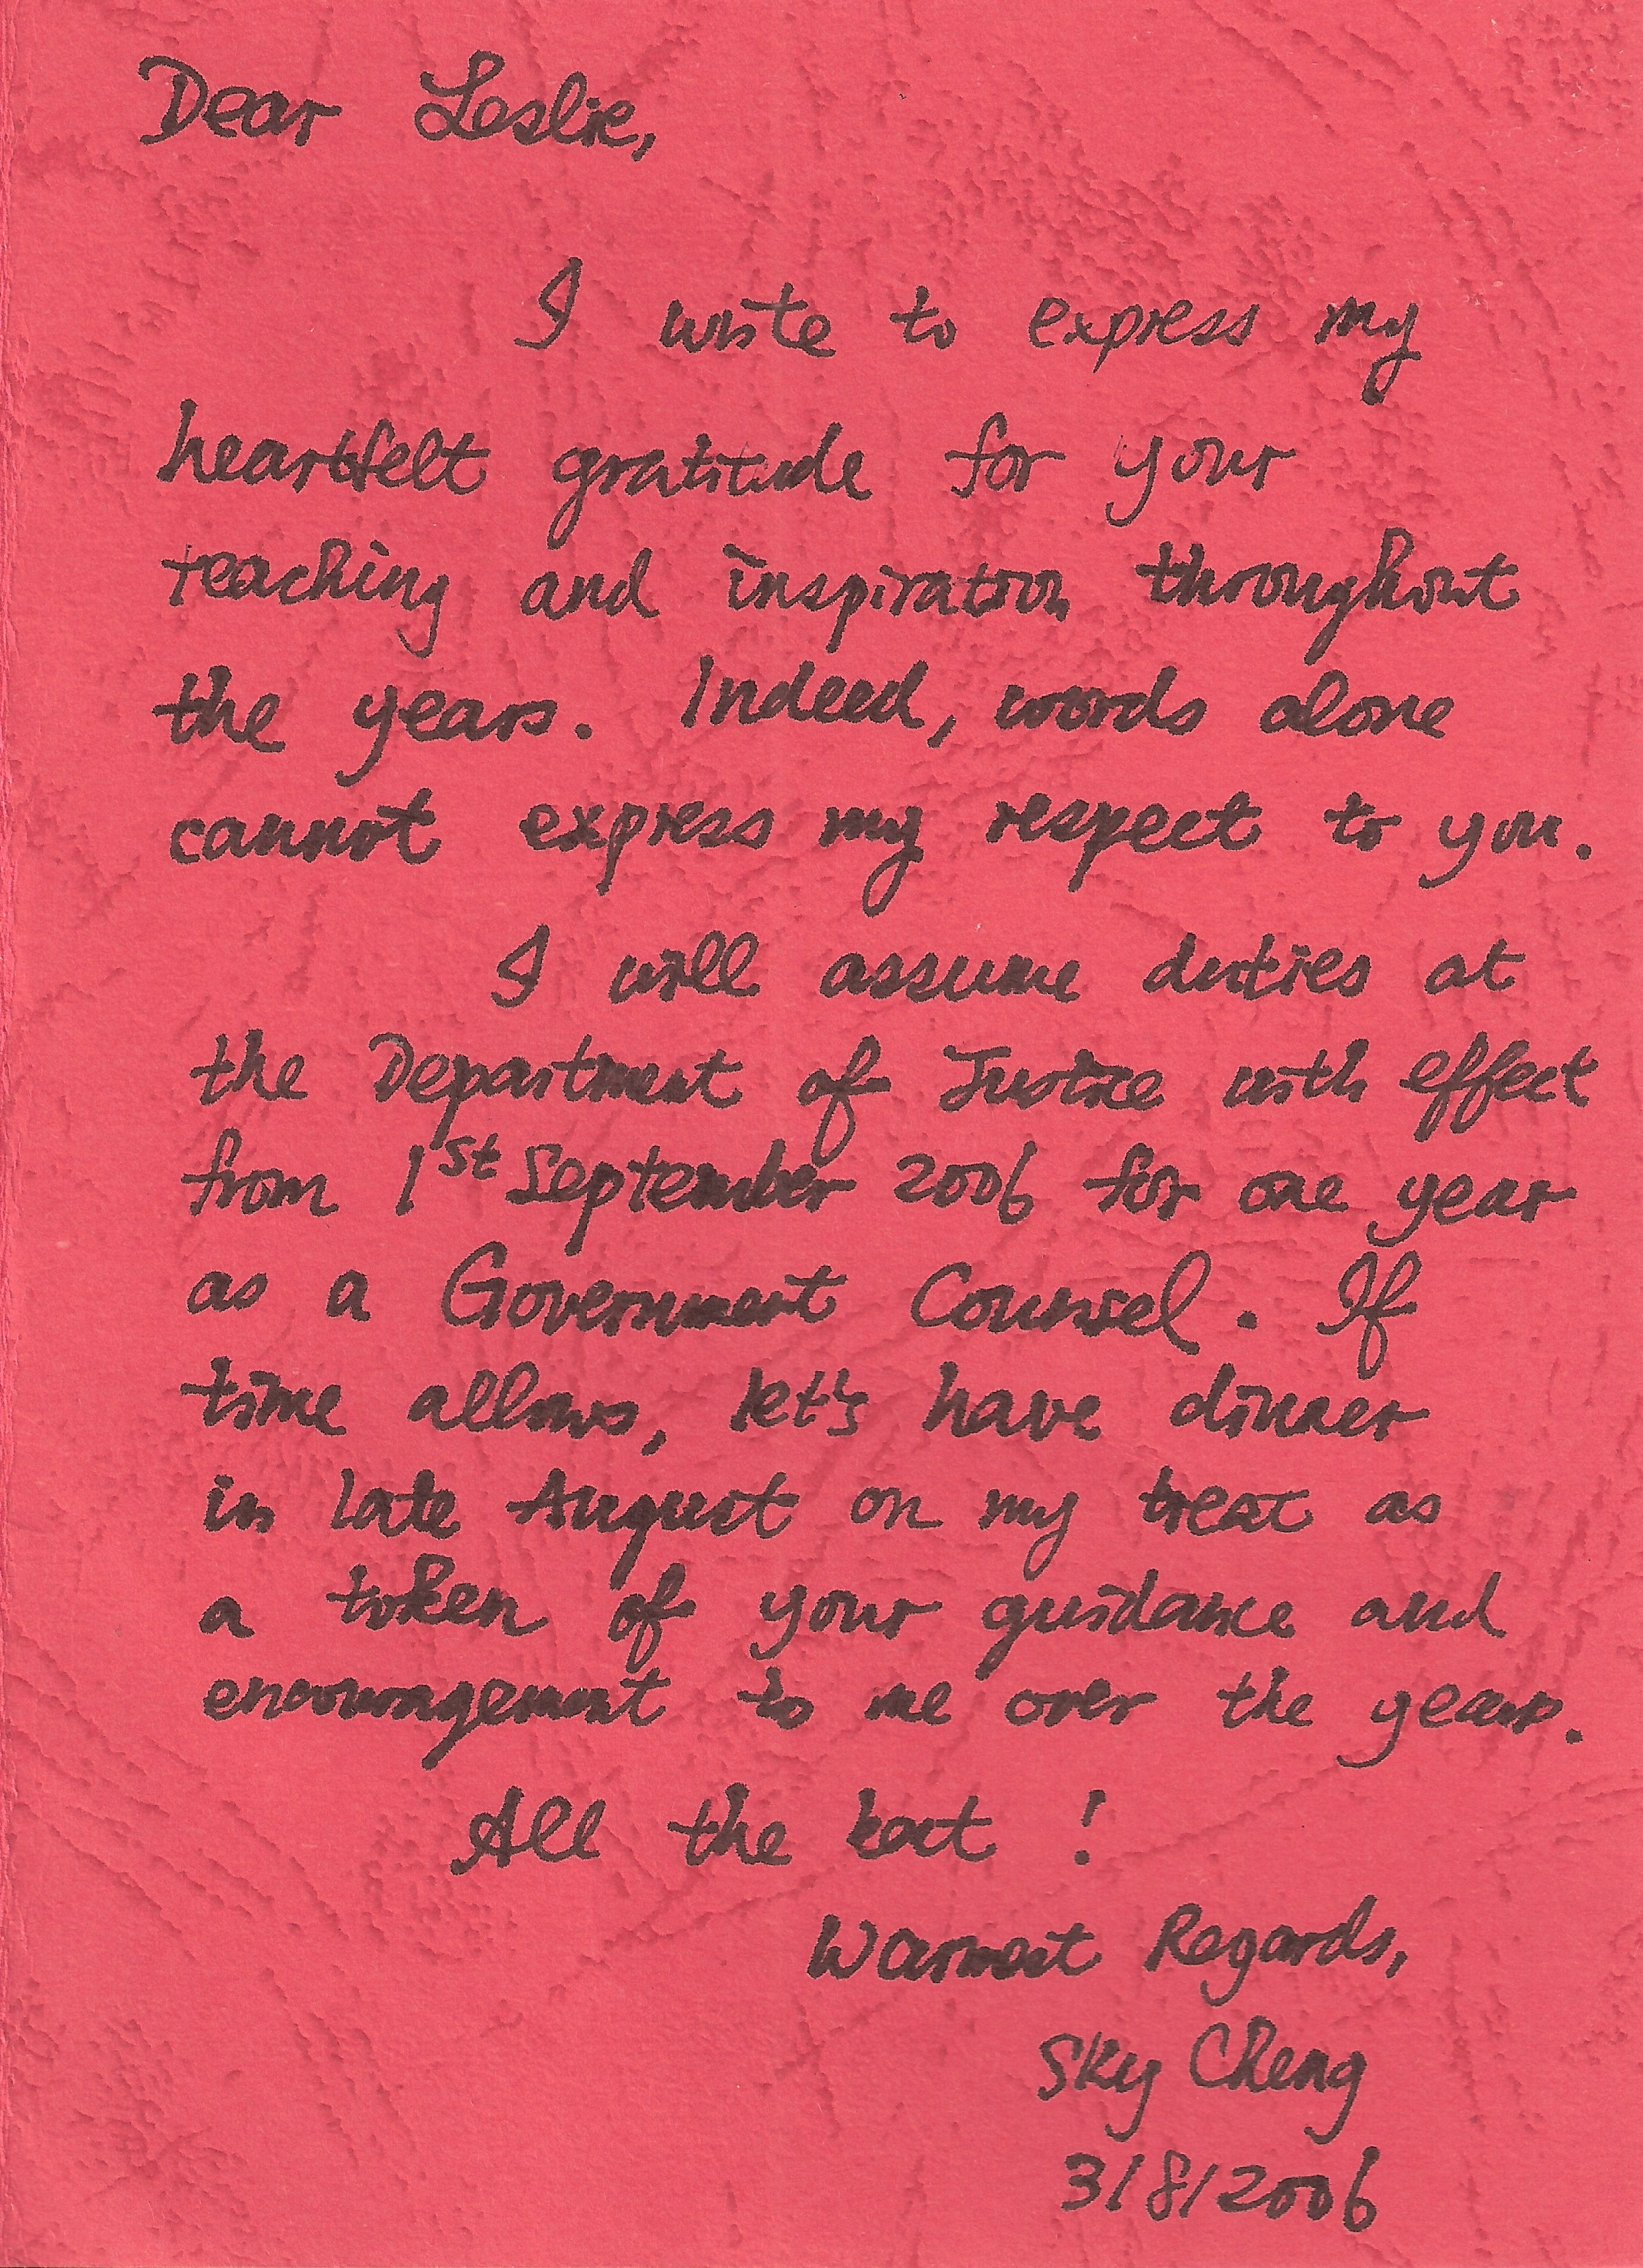 Dear Leslie,
I write to express my
heartfelt gratitude for your
teaching and inspiration throughout
the years. Indeed, words alone
cannot express my respect to you.
I will assume duties at
the Department of Justice with effect
from 1st September 2006 for one year
as a Government Counsel. If
time allows, let's have dinner
in late August on my treat as
a token of your guidance and
encouragement to me over the years.
All the best !
Warmest Regards,
Sky Cheng
3/8/2006